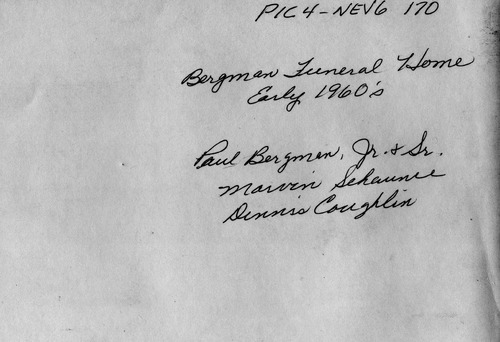 PIC 4 - NEV6 170
Bergman Funeral Home
Early 1960's
Paul Bergman, Jr. & Sr.
Marvin Schaunce
Dennis Coughlin